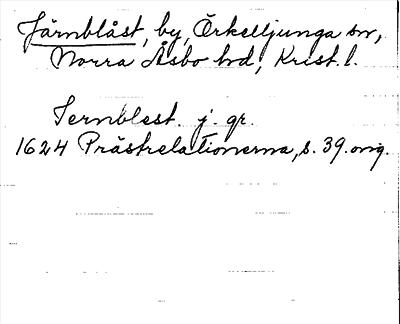 Järnblåst, by, Örkelljunga sn,
Norra Åsbo hd, Krist. l.
Jernblest. j. gr.
1624 Prästrelationerna, s. 39. orig.